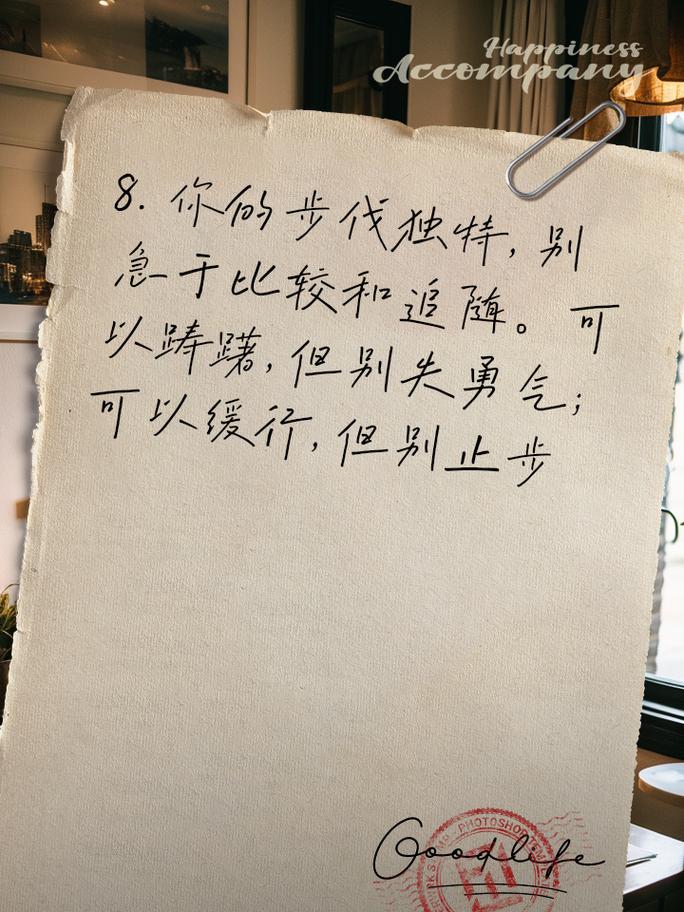 Happiness
Accompany
8. 你的步伐独特，别
急于比较和追随。可
以踌躇，但别失勇气；
可以缓行，但别止步
PHOTOSHOP
Goodlife